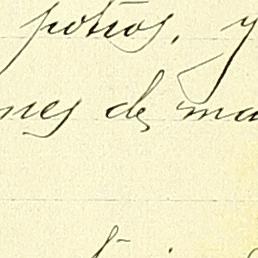 potros, y
nes de ma